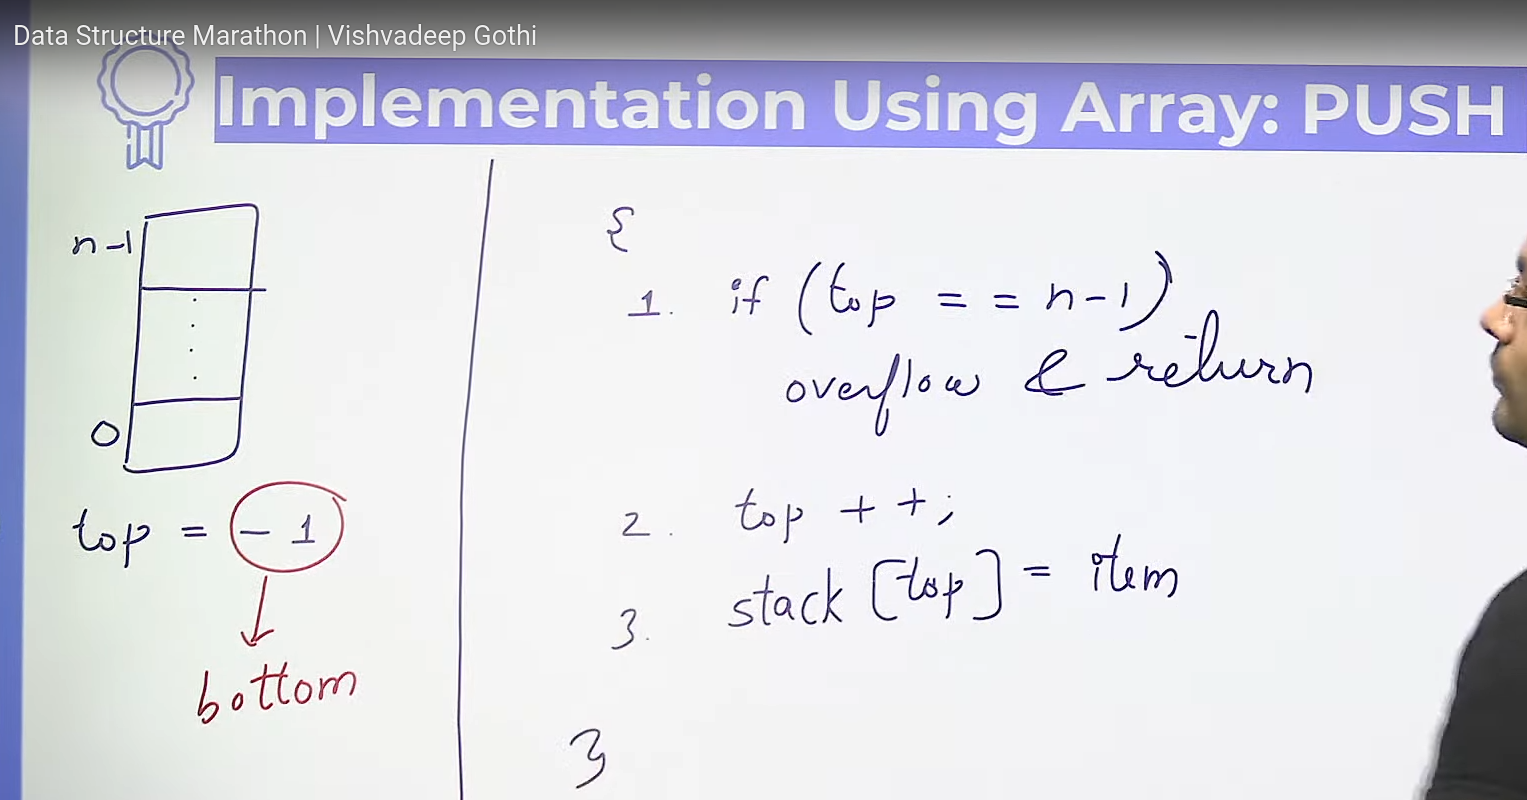 Data Structure Marathon | Vishvadeep Gothi
Implementation Using Array: PUSH
n-1
0
top = -1
bottom
{
1. if (top == n-1)
overflow & return
2. top ++;
3. stack [top] = item
}